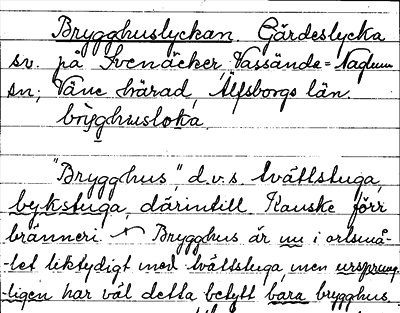 Brygghuslyckan. Gärdeslycka
sv. på Svenäcker, Vassända-Naglum
sn; Väne härad, Älfsborgs län.
brygghusloka.
"Brygghus", d.v.s. tvättstuga,
bykstuga, därintill kanske förr
bränneri. Brygghus är nu i ortsmå-
-let liktydigt med tvättstuga, men ursprung-
-ligen har väl detta betytt bara brygghus.